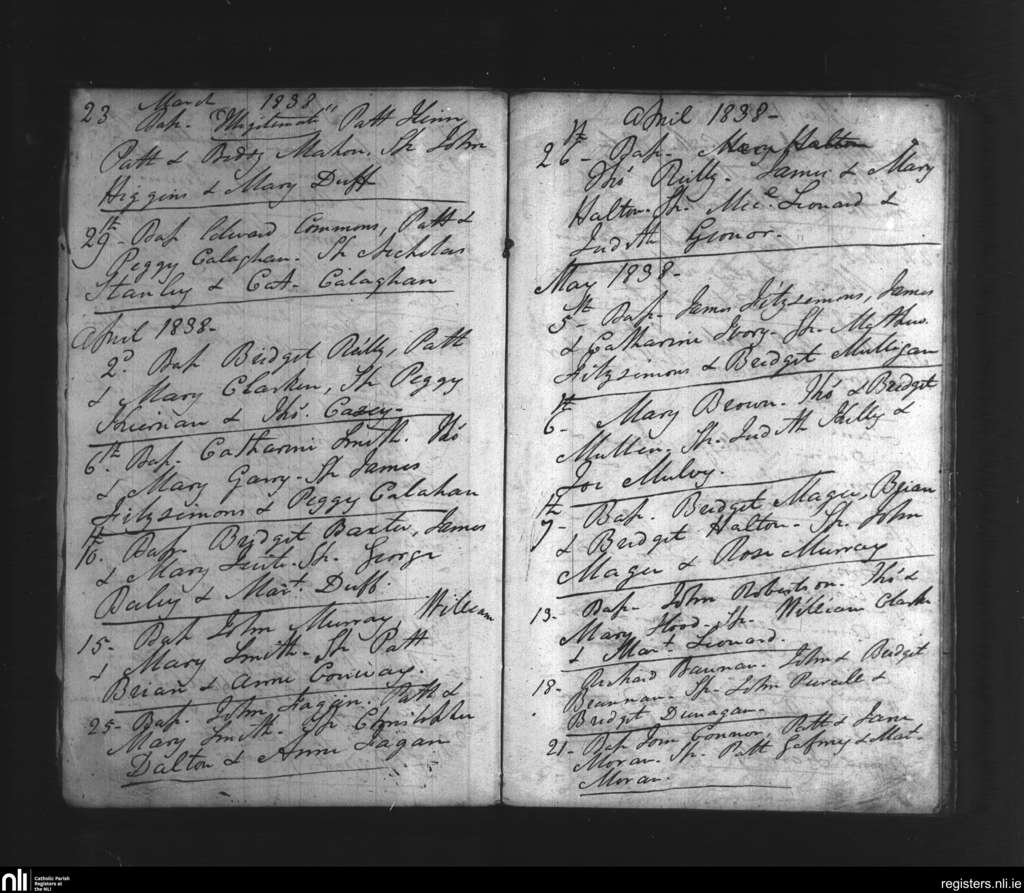 March 1838
23 Bap. "Illigitimate" Patt Heirn
Patt & Biddy Mahon. Sp. John
Higgins & Mary Duff
29th - Bap Edward Commons, Patt &
Peggy Calaghan. Sp Nicholas
Stanley & Cat. Calaghan
April 1838-
2d. Bap Bridget Reilly, Patt
& Mary Clarken, Sp Peggy
Kiernan & Thos. Casey-
6th. Bap. Catharine Smith. Thos
& Mary Garry - Sp James
Fitzsimons & Peggy Calahan
Bap. Bridget Baxter, James
& Mary Sp. George
Daley & Mart. Duff.
15 - Bap John Murray, William
& Mary Smith - Sp Patt
Brian & Anne Conway.
25 - Bap. John Fagan. Patt &
Mary Smith. Sp Christopher
Dalton & Anne Fagan
April 1838-
26th - Bap. Mary Halton
Thos Reilly. James & Mary
Halton. Sp. Mic. Leonard &
Judith Gronor.
May 1838-
5th - Bap. James Fitzsimons, James
& Catharine Ivory - Sp. Matthew
Fitzsimons & Bridget Mulligan
6th - Mary Brown. Thos & Bridget
Mullen, Sp. Judith Skelly &
Joe Mulvy.
7th - Bap. Bridget Magee, Brian
& Bridget Halton - Sp. John
Magee & Rose Murray
13 - Bap. John Robertson. Thos &
Mary Hood - Sp. William Clark
& Mart. Leonard.
18 - Richard Bannan. John & Bridget
Brannan. Sp. John Purcell &
Bridget Dunagan.
21 - Bap Tom Connor, Patt & Jane
Moran. Sp. Patt Gaffney & Mart.
Moran.
nli
Catholic Parish
Registers at
the NLI
registers.nli.ie